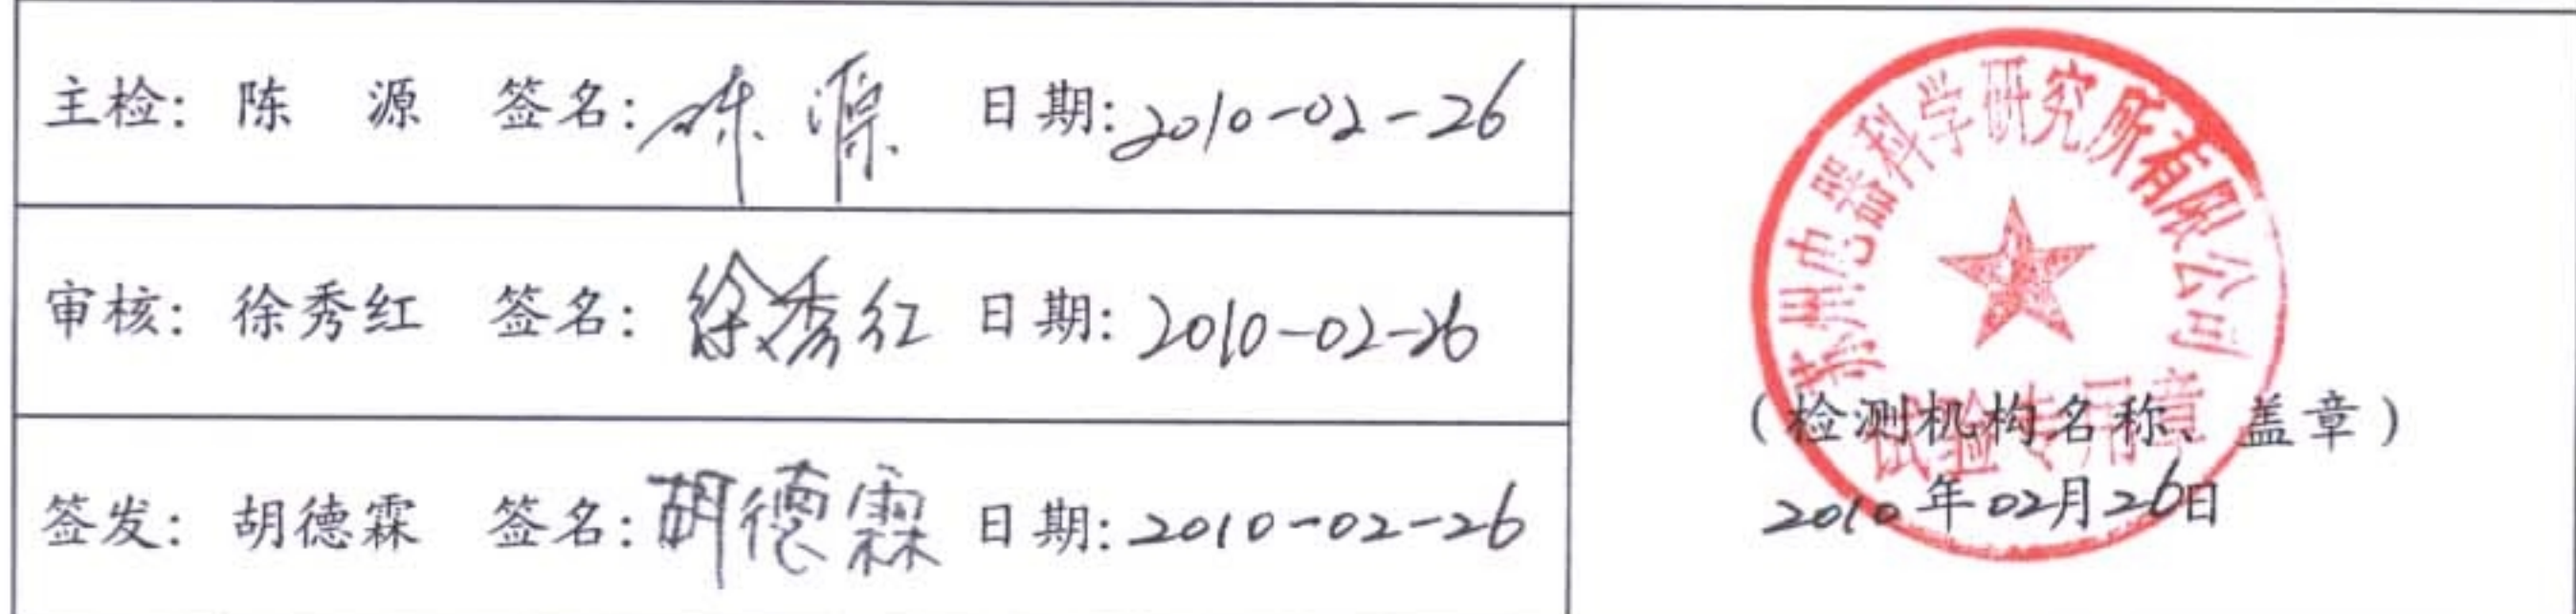 主检: 陈 源 签名: 陈源 日期: 2010-02-26
审核: 徐秀红 签名: 徐秀红 日期: 2010-02-26
签发: 胡德霖 签名: 胡德霖 日期: 2010-02-26
苏州电器科学研究所有限公司
试验专用章
(检测机构名称、盖章)
2010年02月26日